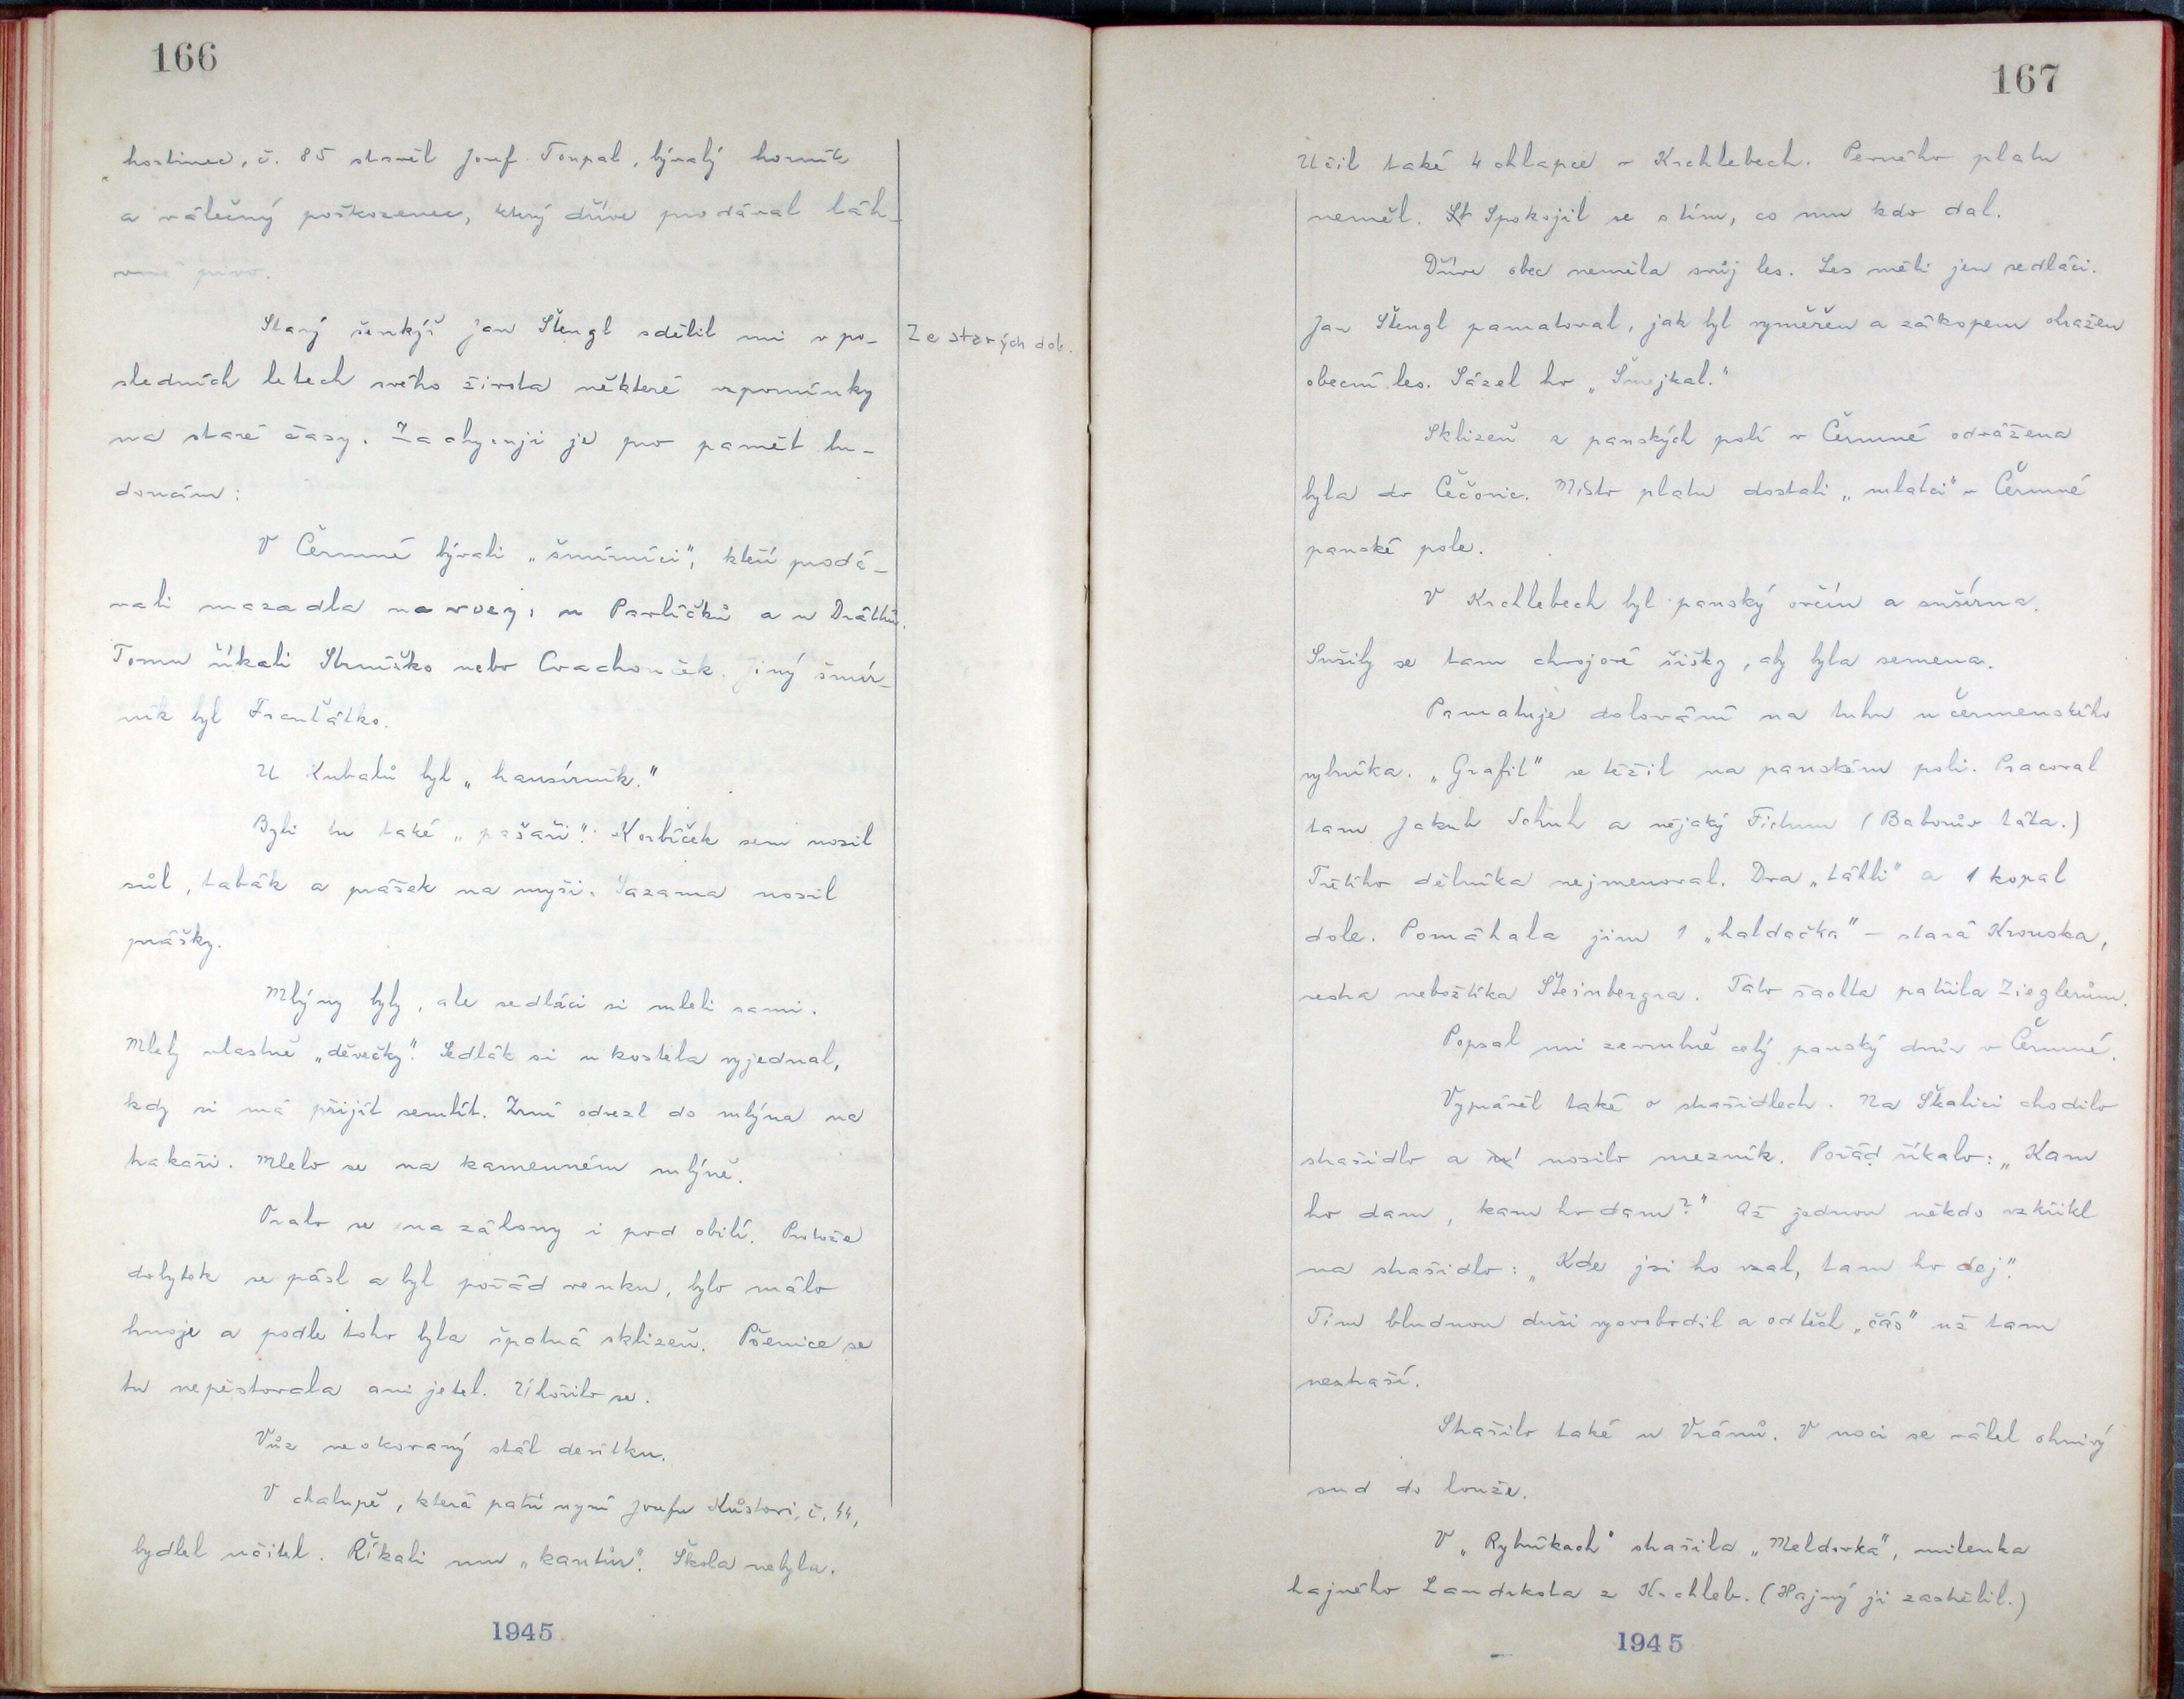 166
hostinec, č. 85 stavěl Josef Toupal, bývalý horník
a válečný poškozenec, který dříve prodával láh-
vové pivo.
Ze starých dob.
Starý šenkýř Jan Štengl sdělil mi v po-
sledních letech svého života některé vzpomínky
na staré časy. Zachycuji je pro paměť bu-
doucím:
V Čermné bývali „šmírníci", kteří prodá-
vali mazadla na vozy, u Pavlíčků a u Dráttů.
Tomu říkali Strníčko nebo Cvachouček. Jiný šmír-
ník byl Franťátko.
U Kubalů byl „hausírník."
Byli tu také „pašaři". Korbíček sem nosil
sůl, tabák a prášek na myši. Sazama nosil
prášky.
Mlýny byly, ale sedláci si mleli sami.
Mlely vlastně „děvečky". Sedlák si u kostela vyjednal,
kdy si má přijít semlít. Zrní odvezl do mlýna na
trakaři. Mlelo se na kamenném mlýně.
Oralo se na záhony i pod obilí. Protože
dobytek se pásl a byl pořád venku, bylo málo
hnoje a podle toho byla špatná sklizeň. Pšenice se
tu nepěstovala ani jetel. Úhořilo se.
Vůz neokovaný stál desítku.
V chalupě, která patří nyní Josefu Kůstovi, č. 44,
bydlel učitel. Říkali mu „kantor". Škola nebyla.
1945
167
Učil také 4 chlapce v Krchlebech. Pevného platu
neměl. St Spokojil se s tím, co mu kdo dal.
Dříve obec neměla svůj les. Les měli jen sedláci.
Jan Štengl pamatoval, jak byl vyměřen a zákopem obražen
obecní les. Sázel ho „Šmejkal."
Sklizeň z panských polí v Čermné odvážena
byla do Čečovic. Místo platu dostali „mlatci" v Čermné
panské pole.
V Krchlebech byl panský ovčín a sušírna.
Sušily se tam chvojové šišky, aby byla semena.
Pamatuje dolování na tuhu u čermenského
rybníka. „Grafit" se těžil na panském poli. Pracoval
tam Jakub Schuh a nějaký Fictum (Babonův táta.)
Třetího dělníka nejmenoval. Dva „táhli" a 1 kopal
dole. Pomáhala jim 1 „haldačka" - stará Krouska,
sestra nebožtíka Šteinbergra. Tato šachta patřila Zieglerům.
Popsal mi zevrubně celý panský dvůr v Čermné.
Vyprávěl také o strašidlech. Na Skalici chodilo
strašidlo a nosilo mezník. Pořád říkalo: „Kam
ho dam, kam ho dam?" Až jednou někdo vzkřikl
na strašidlo: „Kde jsi ho vzal, tam ho dej".
Tím bludnou duši vysvobodil a od těch „čás" už tam
nestraší.
Strašilo také u Vránů. V noci se válel ohnivý
sud do louže.
V „Rybníkach" strašila „Meldovka", milenka
hajného Landrksta z Krchleb. (Hajný ji zastřelil.)
1945